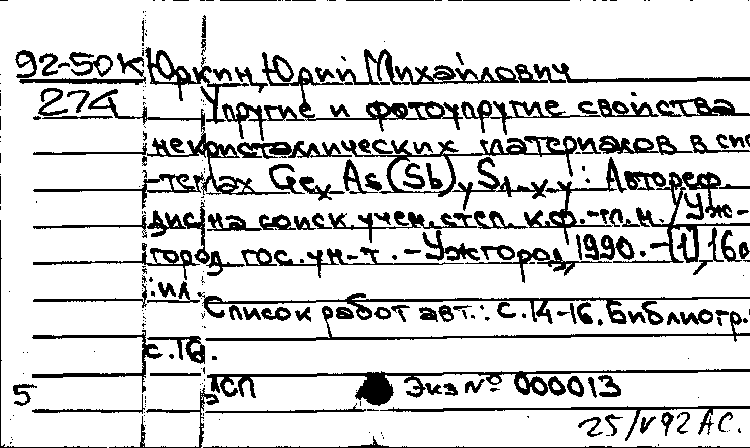 92-50К Юркин, Юрий Михайлович
274 Упругие и фотоупругие свойства
некристаллических материалов в сис
-темах GeₓAs(Sb)ᵧS₁₋ₓ₋ᵧ: Автореф.
дис. на соиск. учен. степ. к.ф.-м.н. / Уж-
город. гос. ун-т. - Ужгород, 1990. - [1], 16с
.: ил.
Список работ авт.: с.14-16. Библиогр.:
с.16.
5 ДСП Экз № 000013
25/V 92 АС.